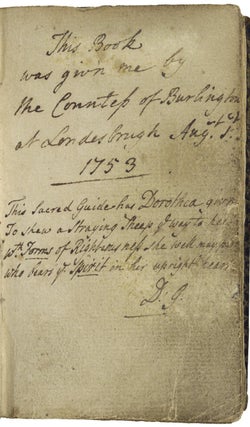 This Book
was given me by
the Countess of Burlington
at Londesbrugh Aug.st 1st
1753
This Sacred Guide has Dorothea given
To shew a straying Sheep ye way to
wth Forms of Righteousness she well may
who bears ye Spirit in her upright
D. G.